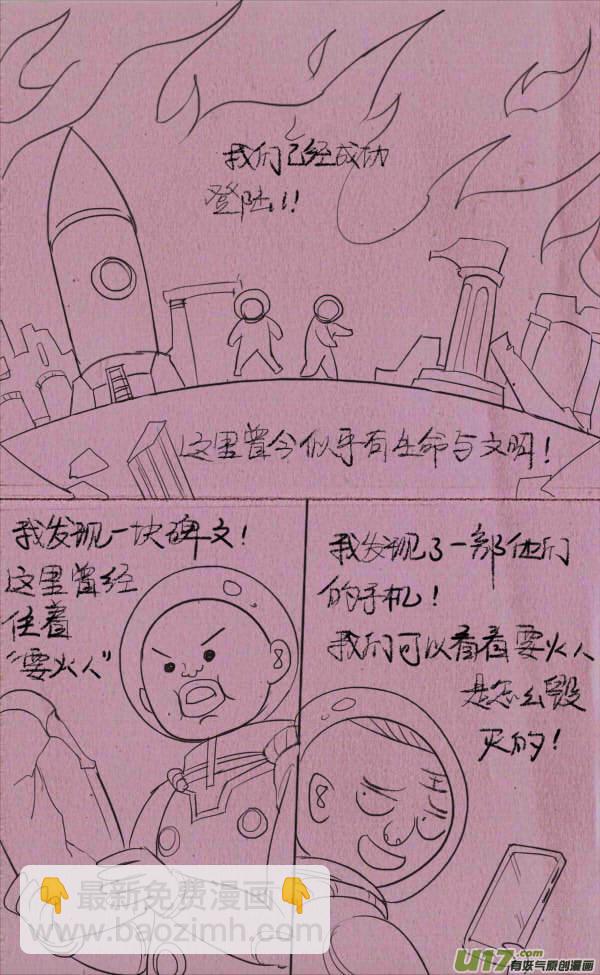 我们已经成功
登陆!!
这里曾今似乎有生命与文明!
我发现一块碑文!
这里曾经
住着
“要火人”
我发现了一部他们
的手机!
我们可以看看要火人
是怎么毁
灭的!
最新免费漫画
www.baozimh.com
U17.com
有妖气原创漫画